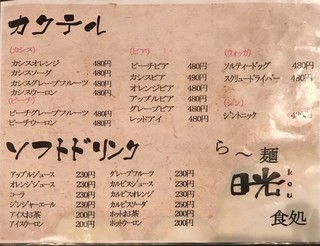 カクテル
(カシス)
カシスオレンジ 480円
カシスソーダ 480円
カシスグレープフルーツ 480円
カシスウーロン 480円
(ピーチ)
ピーチグレープフルーツ 480円
ピーチウーロン 480円
(ビア)
ピーチビア 480円
カシスビア 490円
オレンジビア 480円
アップルビア 480円
グレープビア 480円
レッドアイ 480円
(ウォッカ)
ソルティードッグ 480円
スクリュードライバー 480円
(ジン)
ジントニック 480円
ソフトドリンク
アップルジュース 230円
オレンジジュース 230円
コーラ 230円
ジンジャーエール 230円
アイスお茶 200円
アイスウーロン 200円
グレープフルーツ 230円
カルピスジュース 230円
カルピスオレンジ 230円
カルピスソーダ 250円
ホットお茶 200円
ホットウーロン 200円
ら〜麺
晄
kou
食処